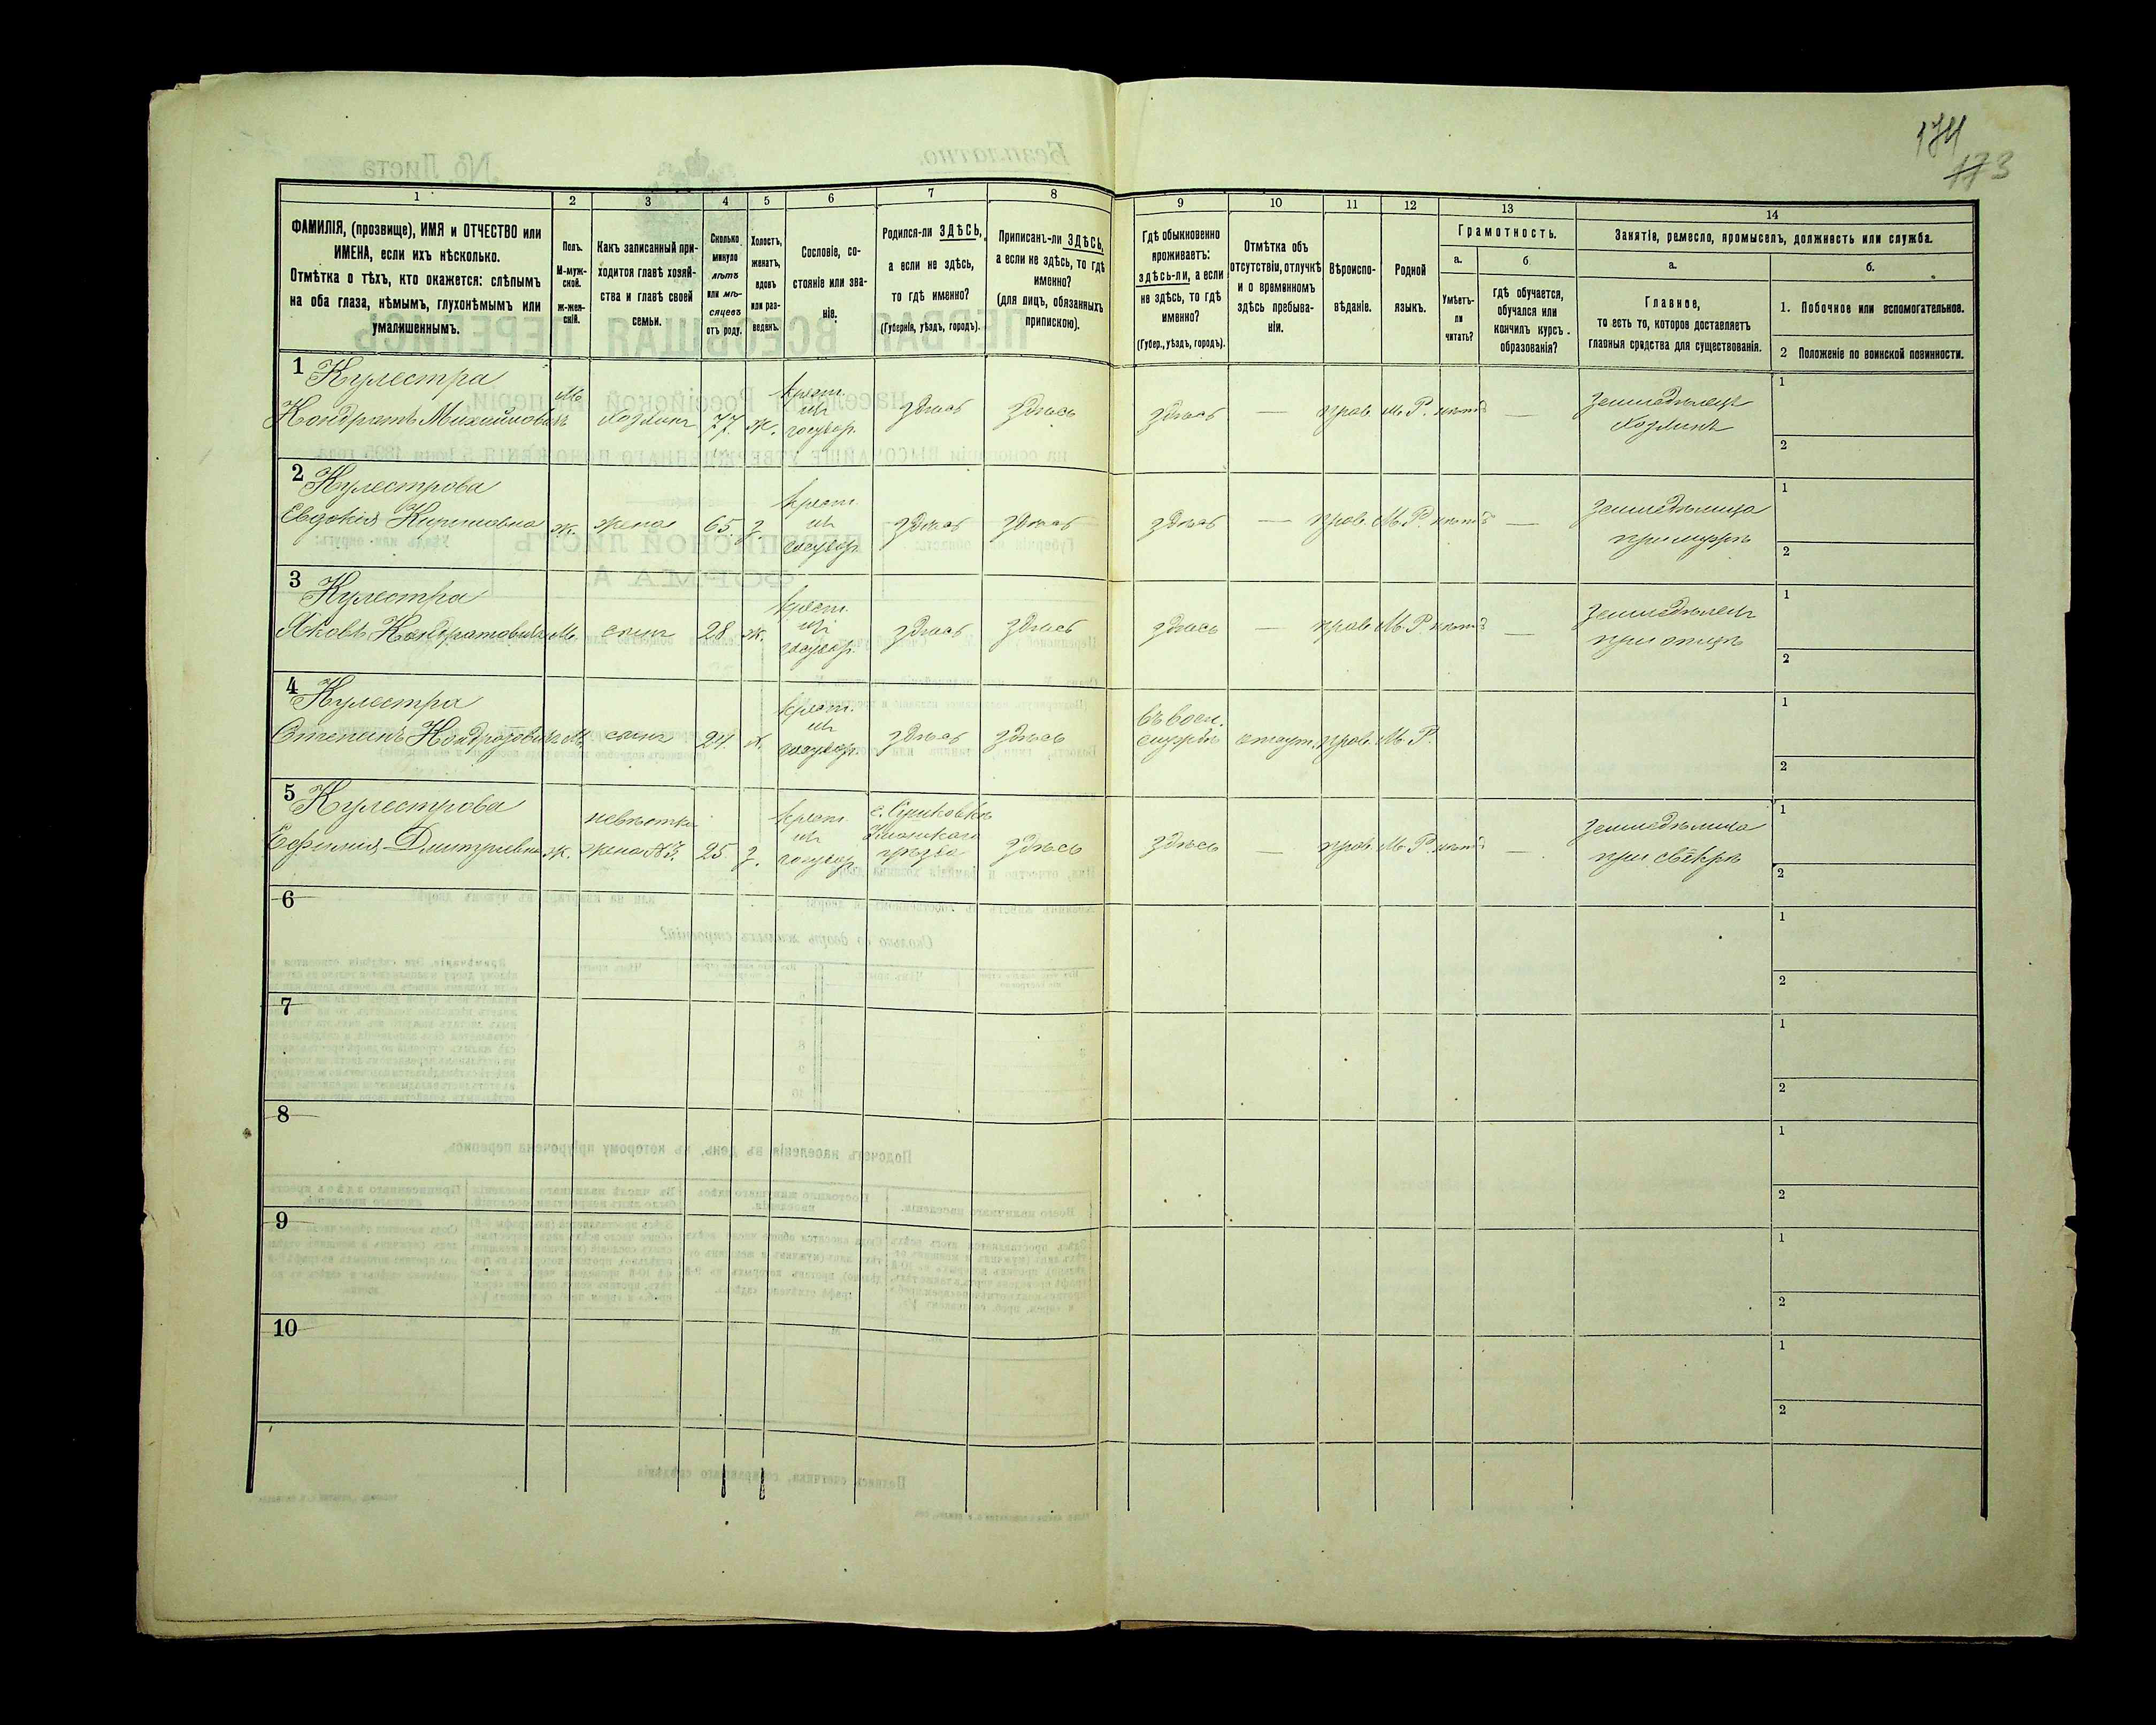 174
173
1
2
3
4
5
6
7
8
9
10
11
12
13
14
ФАМИЛІЯ, (прозвище), ИМЯ и ОТЧЕСТВО или
ИМЕНА, если ихъ нѣсколько.
Отмѣтка о тѣхъ, кто окажется: слѣпымъ
на оба глаза, нѣмымъ, глухонѣмымъ или
умалишеннымъ.
Полъ.
М-муж-
ской.
ж-жен-
скій.
Какъ записанный при-
ходится главѣ хозяй-
ства и главѣ своей
семьи.
Сколько
минуло
лѣтъ
или мѣ-
сяцевъ
отъ роду.
Холостъ,
женатъ,
вдовъ
или раз-
веденъ.
Сословіе, со-
стояніе или зва-
ніе.
Родился-ли ЗДѢСЬ,
а если не здѣсь,
то гдѣ именно?
(Губернія, уѣздъ, городъ).
Приписанъ-ли ЗДѢСЬ,
а если не здѣсь, то гдѣ
именно?
(для лицъ, обязанныхъ
припискою).
Гдѣ обыкновенно
проживаетъ:
здѣсь-ли, а если
не здѣсь, то гдѣ
именно?
(Губер., уѣздъ, городъ).
Отмѣтка объ
отсутствіи, отлучкѣ
и о временномъ
здѣсь пребыва-
ніи.
Вѣроиспо-
вѣданіе.
Родной
языкъ.
Грамотность.
а.
Умѣетъ-
ли
читать?
б.
гдѣ обучается,
обучался или
кончилъ курсъ
образованія?
Занятіе, ремесло, промыселъ, должность или служба.
а.
Главное,
то есть то, которое доставляетъ
главныя средства для существованія.
б.
1. Побочное или вспомогательное.
2 Положеніе по воинской повинности.
1
Кулестра
Кондратъ Михайловичъ
М.
хозяинъ
77.
ж.
крест.
из
государ.
здѣсь
здѣсь
здѣсь
—
прав.
М. Р.
нѣтъ
—
земледѣлецъ
хозяинъ
1
2
2
Кулестрова
Евдокія
ж.
жена
65.
з.
крест.
из
государ.
здѣсь
здѣсь
здѣсь
—
прав.
М. Р.
нѣтъ
—
земледѣлица
при мужѣ
1
2
3
Кулестра
Яковъ Кондратовичъ
М.
сынъ
28
ж.
крест.
из
государ.
здѣсь
здѣсь
здѣсь
—
прав.
М. Р.
нѣтъ
—
земледѣлецъ
при отцѣ
1
2
4
Кулестра
Степанъ
М.
сынъ
24.
х.
крест.
из
государ.
здѣсь
здѣсь
въ воен.
службѣ
отсут.
прав.
М. Р.
1
2
5
Кулестрова
Ефимія Дмитріевна
ж.
невѣстка
жена №3.
25.
з.
крест.
из
государ.
уѣзда
здѣсь
здѣсь
—
прав.
М. Р.
нѣтъ
—
земледѣлица
при свёкрѣ
1
2
6
1
2
7
1
2
8
1
2
9
1
2
10
1
2